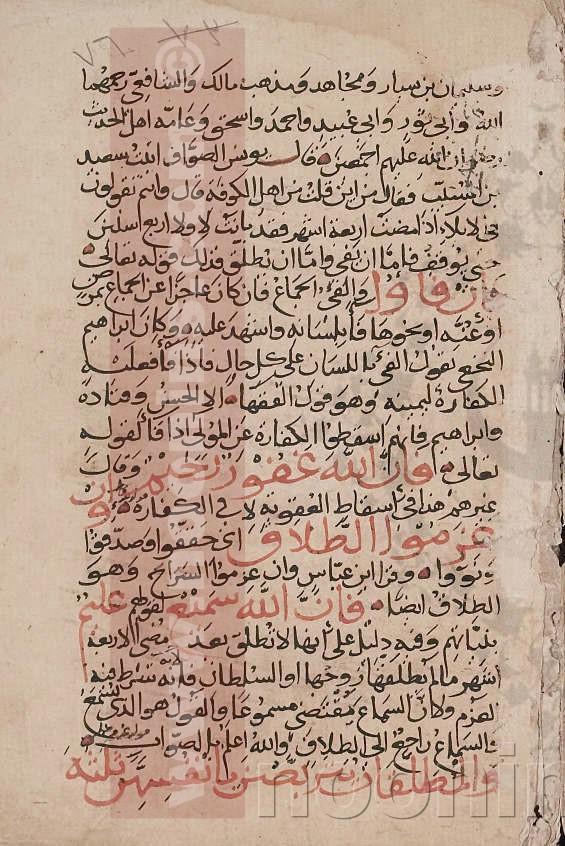 ٧٦ ٧٣
وسليمان بن يسار ومجاهد ومذهب مالك والشافعي رحمهما
الله وابي ثور وابي عبيد واحمد واسحق وعامه اهل الحديث
الله عليهم اجمعين قال يونس الصواف اتيت سعيد
بن المسيب فقال من اين قلت من اهل الكوفه قال وانتم تقولون
في الايلاء اذا مضت اربعة اشهر فقد بانت لا ولا اربع سنين
حتى يوقف فاما ان يفي واما ان يطلق فذلك قوله تعالى
فان فاؤا والفيء الجماع فان كان عاجزا عن الجماع بمرض
او عنه او نحوها فاء بلسانه واشهد عليه وكان ابراهيم
النخعي يقول الفيء باللسان على كل حال فاذا فاء فعليه
الكفارة ليمينه وهو قول الفقهاء الا الحسن وقتاده
وابراهيم فانهم اسقطوا الكفارة عن المولى اذا فاء لقوله
تعالى فان الله غفور رحيم وقال
غيرهم هذا في اسقاط العقوبة لا في الكفارة وان
عزموا الطلاق اي حققوا وصدقوا
ونووا وقرا ابن عباس وان عزموا السراح وهو
الطلاق ايضا فان الله سميع لقولهم عليم
بنياتهم وفيه دليل على انها لا تطلق بعد مضي الاربعة
اشهر ما لم يطلقها زوجها او السلطان فانه شرط فيه
العزم ولان السماع يقتضي مسموعا والقول هو الذي يسمع
فالسماع راجع الى الطلاق والله اعلم بالصواب
والمطلقات يتربصن بانفسهن ثلثة
noor